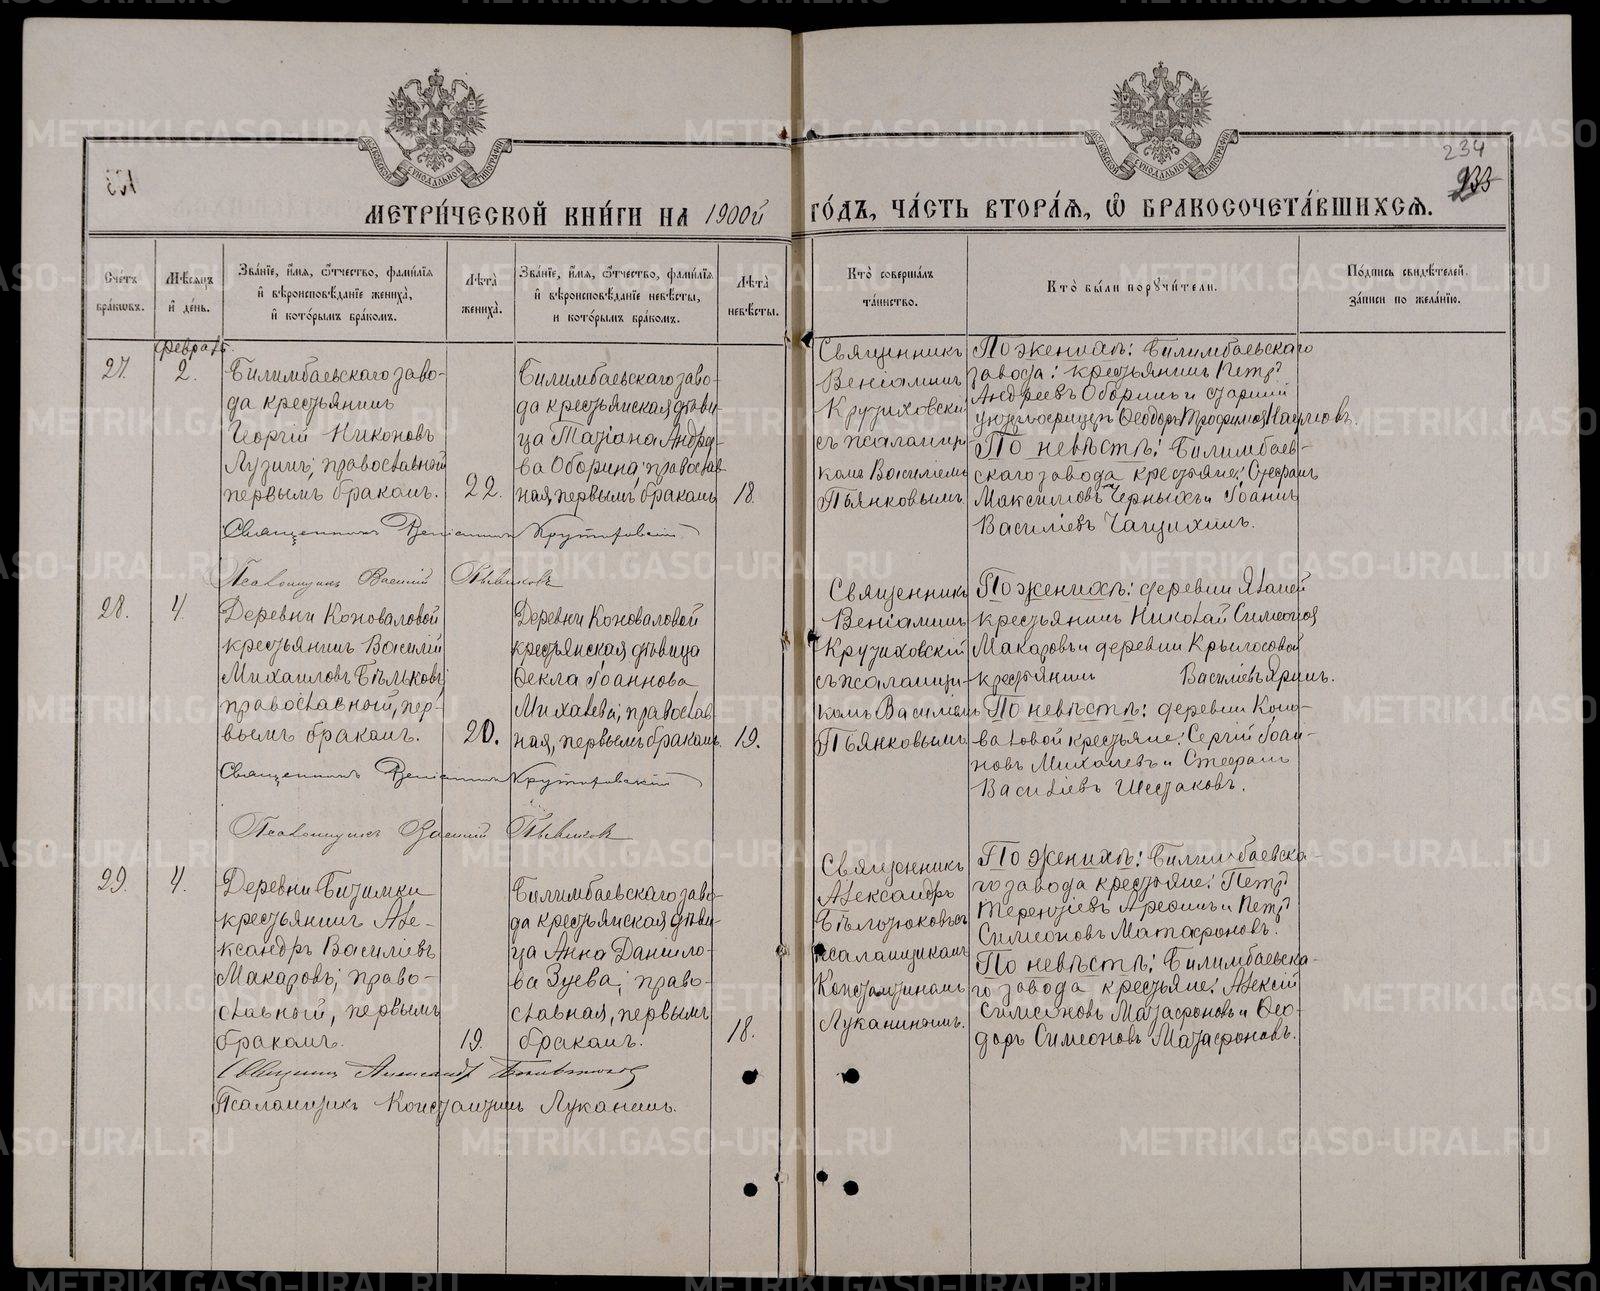 234
133
МЕТРИ́ЧЕСКОЙ КНИ́ГИ НА 1900й ГО́ДЪ, ЧА́СТЬ ВТОРА́Ѧ, Ѽ БРАКОСОЧЕТА́ВШИХСѦ.
Сче́тъ бра́кѡвъ.
Мѣ́сѧцъ и҆ де́нь.
Зва́нїе, и҆́мѧ, ѻ҆́тчество, фами́лїѧ
и҆ вѣроисповѣ́данїе жениха̀,
и҆ кото́рымъ бра́комъ.
Лѣ́та жениха̀.
Зва́нїе, и҆́мѧ, ѻ҆́тчество, фами́лїѧ
и҆ вѣроисповѣ́данїе невѣ́сты,
и кото́рымъ бра́комъ.
Лѣ́та невѣ́сты.
Кто̀ соверша́лъ та́инство.
Кто̀ бы́ли порꙋчи́тели.
По́дпись свидѣ́телей записи по жела́нїю.
Февраль.
27. 2.
Билимбаевскаго заво-
да крестьянинъ
Георгій Никоновъ
Лузинъ; православный
первымъ бракомъ. 22.
Билимбаевскаго заво-
да крестьянская дѣви-
ца Татіана Андрее-
ва Оборина; православ-
ная, первымъ бракомъ 18.
Священникъ
Веніаминъ
Крутиховскій
съ псаломщи-
комъ Василіемъ
Пьянковымъ.
По женихѣ: Билимбаевскаго
завода: крестьянинъ Петръ
Андреевъ Оборинъ и старшій
унтеръ-офицеръ Ѳеодоръ Трофимов
По невѣстѣ: Билимбаев-
скаго завода крестьяне: Стефанъ
Максимовъ Черныхъ и Іоаннъ
Василіевъ Чащихинъ.
Священникъ Веніаминъ Крутиховскій
Псаломщикъ Василій Пьянковъ
28. 4.
Деревни Коноваловой
крестьянинъ Василій
Михаиловъ Бѣльковъ;
православной, пер-
вымъ бракомъ. 20.
Деревни Коноваловой
крестьянская дѣвица
Ѳекла Іоаннова
Михалева; православ-
ная, первымъ бракомъ. 19.
Священникъ
Веніаминъ
Крутиховскій
съ псаломщи-
комъ Василіемъ
Пьянковымъ
По женихѣ: деревни
крестьянинъ Николай Симеонов
Макаровъ и деревни Крылосовой
крестьянинъ Василіевъ Яринъ.
По невѣстѣ: деревни Коно-
валовой крестьяне: Сергій Іоан-
новъ Михалевъ и Стефанъ
Василіевъ Шестаковъ.
Священникъ Веніаминъ Крутиховскій
Псаломщикъ Василій Пьянковъ
29. 4.
Деревни Битимки
крестьянинъ Але-
ксандръ Василіевъ
Макаровъ; право-
славной, первымъ
бракомъ. 19.
Билимбаевскаго заво-
да крестьянская дѣви-
ца Анна Даніило-
ва Зуева; право-
славная, первымъ
бракомъ. 18.
Священникъ
Александръ
Бѣлозюковъ съ
псаломщикомъ
Константиномъ
Луканинымъ.
По женихѣ: Билимбаевска-
го завода крестьяне: Петръ
Терентіевъ Арефинъ и Петръ
Симеоновъ Матафоновъ.
По невѣстѣ: Билимбаевска-
го завода крестьяне: Алексій
Симеоновъ Матафоновъ и Ѳео-
доръ Симеоновъ Матафоновъ.
Священникъ Александръ
Псаломщикъ Константинъ Луканинъ.
METRIKI.GASO-URAL.RU